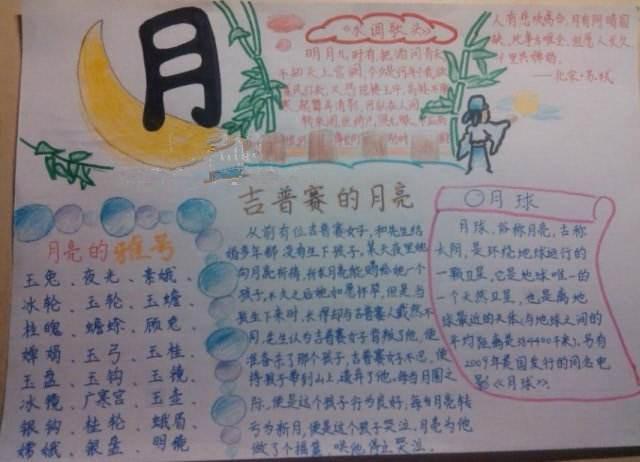 月
《水调歌头》
明月几时有，把酒问青天
不知天上宫阙，今夕是何年？我欲
乘风归去，又恐琼楼玉宇，高处不胜
寒，起舞弄清影，何似在人间
转朱阁，低绮户，照无眠
人有悲欢离合，月有阴晴圆
缺，此事古难全，但愿人长久
千里共婵娟。
——北宋·苏轼
月亮的雅号
玉兔、夜光、素娥、
冰轮、玉轮、玉蟾、
桂魄、蟾蜍、顾兔、
婵娟、玉弓、玉桂、
玉盘、玉钩、玉镜、
冰镜、广寒宫、玉壶、
银钩、桂轮、蛾眉、
嫦娥、银盘、明镜
吉普赛的月亮
从前有位吉普赛女子，和先生结
婚多年都没有生下孩子。某天夜里她
向月亮祈祷，祈求月亮能赐给她一个
孩子，不久之后她如愿怀孕，但是当
长生下来时，长得却与吉普赛人截然不
同，先生认为吉普赛女子背叛了他，便
准备杀了那个孩子，吉普赛女子不忍，便
将孩子带到山上，遗弃了他，每当月圆之
际，便是这个孩子行为良好，每当月亮转
亏为新月，便是这个孩子哭泣，月亮为他
做了个摇篮，哄他停止哭泣。
〇月球
月球，俗称月亮，古称
太阴，是环绕地球运行的
一颗卫星，它是地球唯一的
一个天然卫星，也是离地
球最近的天体(与地球之间的
平均距离是384400千米)。另有
2009年美国发行的同名电
影《月球》。